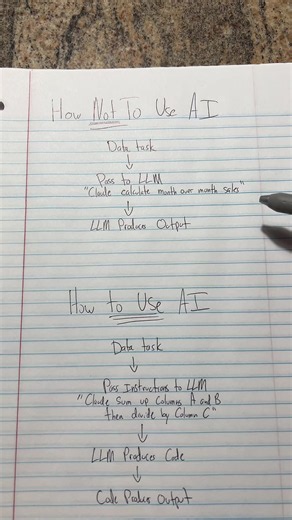 How Not To Use AI
Data task
↓
Pass to LLM
"Claude calculate month over month sales"
↓
LLM Produces Output
How to Use AI
Data task
↓
Pass Instructions to LLM
"Claude sum up Columns A and B
then divide by Column C"
↓
LLM Produces Code
↓
Code Produces Output